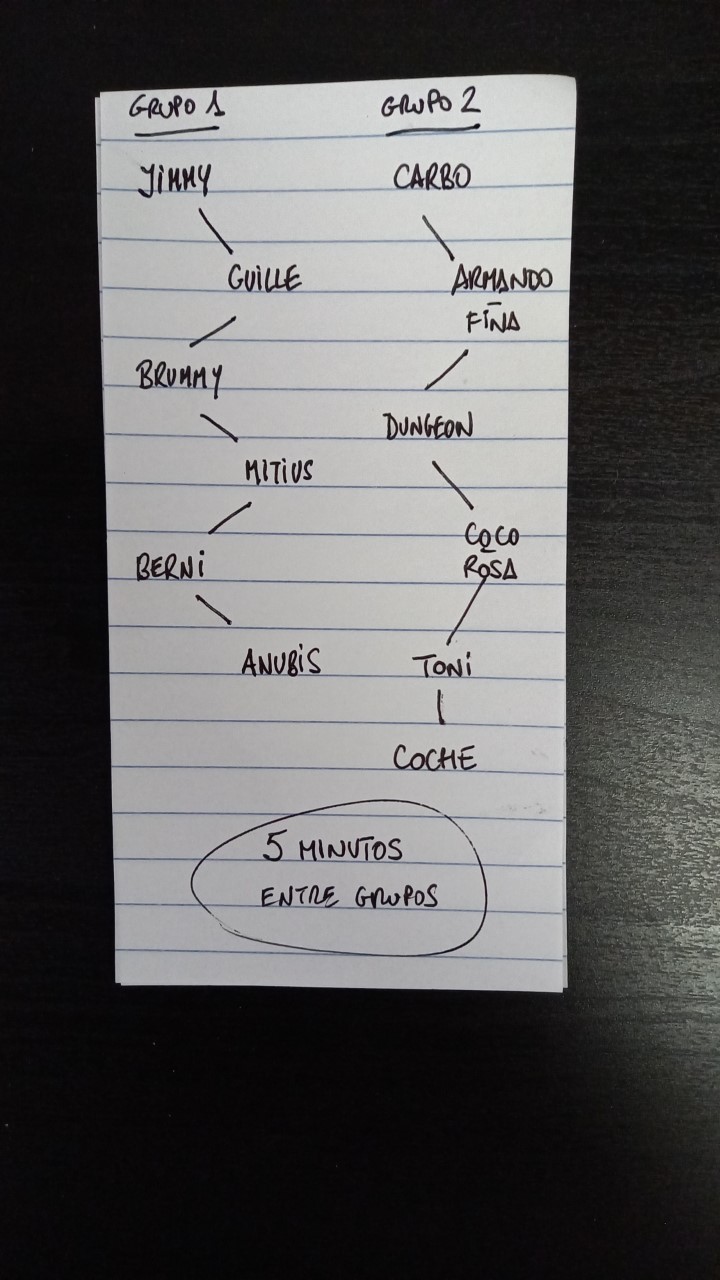 GRUPO 1
JiMMY
GUiLLE
BRUMMY
MiTiUS
BERNi
ANUBiS
GRUPO 2
CARBO
ARMANDO
FiNA
DUNGEON
COCO
ROSA
TONi
COCHE
5 MINUTOS
ENTRE GRUPOS